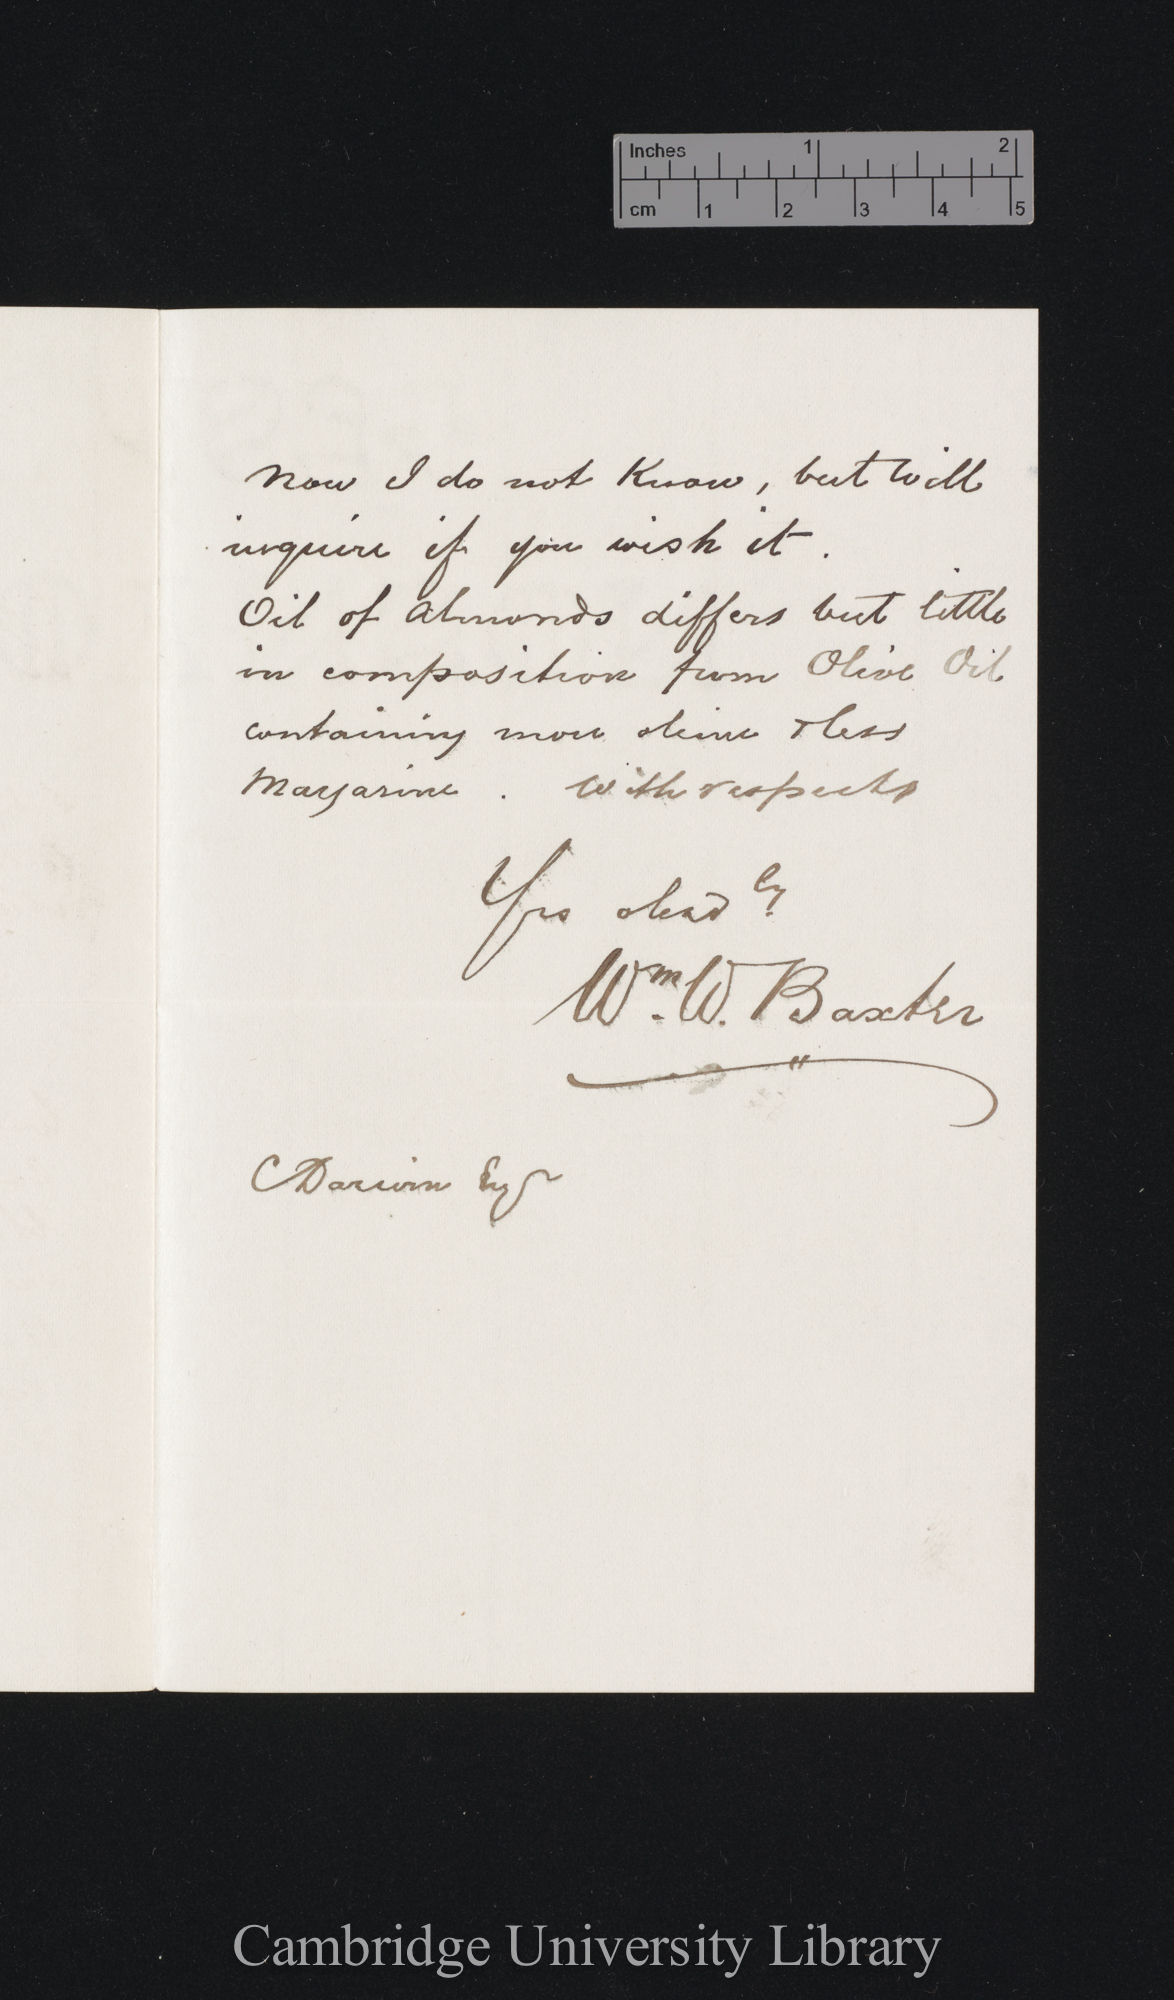 Inches 1 2
cm 1 2 3 4 5
now I do not know, but will
inquire if you wish it.
Oil of Almonds differs but little
in composition from Olive Oil
containing more oleine & less
Margarine. With respects
Yrs obed ly
Wm. W. Baxter
C Darwin Esqr
Cambridge University Library